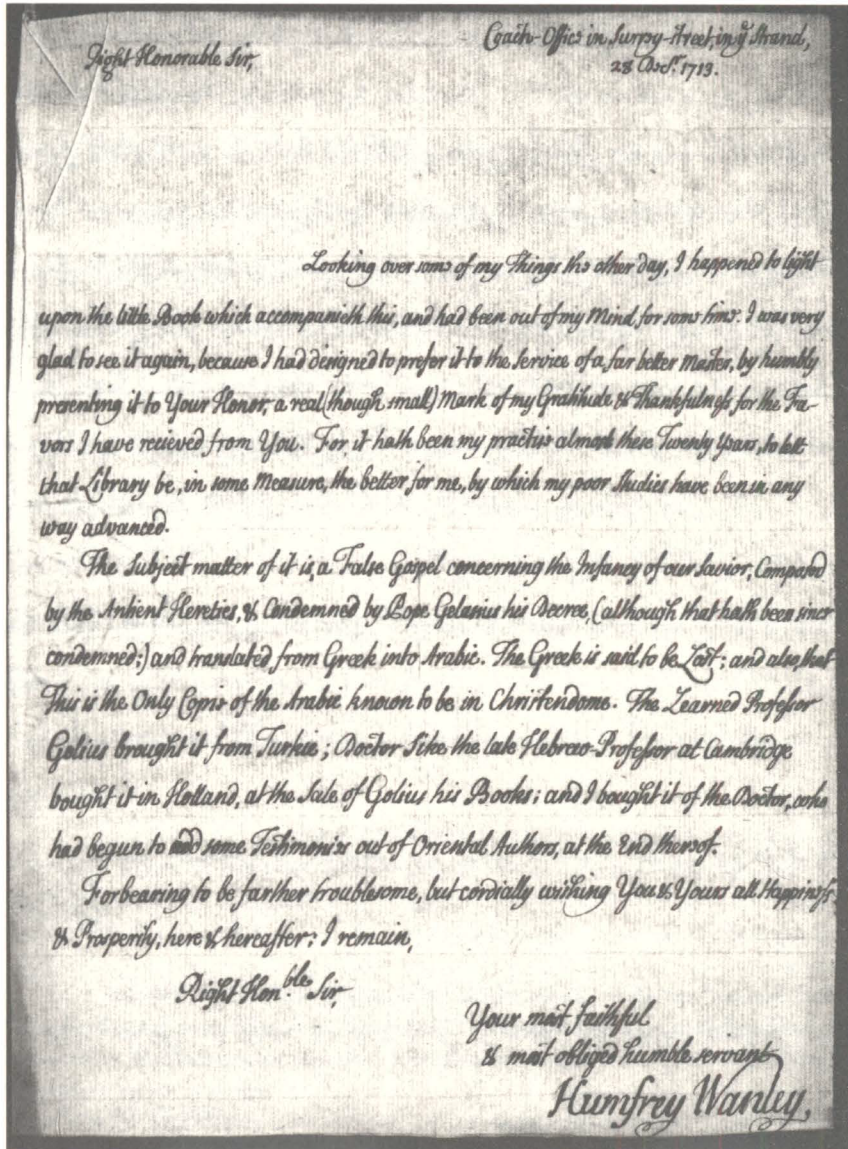 Coach-Office in Surry-street, in yͤ Strand,
Right Honorable Sir,
28 Dec.ʳ 1713.
Looking over some of my Things the other day, I happened to light
upon the little Book which accompanieth this, and had been out of my Mind for some time. I was very
glad to see it again, because I had designed to prefer it to the Service of a far better Master, by humbly
presenting it to Your Honor, a real (though small) Mark of my Gratitude & Thankfulness for the Fa-
vors I have recieved from You. For, it hath been my practise almost these Twenty Years, to lett
that Library be, in some Measure, the better for me, by which my poor Studies have been in any
way advanced.
The Subject matter of it is, a False Gospel concerning the Infancy of our Savior, Composed
by the Antient Heretics, & Condemned by Pope Gelasius his Decree, (although that hath been since
condemned;) and translated from Greek into Arabic. The Greek is said to be Lost; and also, that
This is the Only Copie of the Arabic known to be in Christendome. The Learned Professor
Golius brought it from Turkie; Doctor Sike the late Hebrew-Professor at Cambridge
bought it in Holland, at the Sale of Golius his Books; and I bought it of the Doctor, who
had begun to add some Testimonies out of Oriental Authors, at the End thereof.
Forbearing to be farther troublesome, but cordially wishing You & Yours all Happiness
& Prosperity, here & hereafter; I remain,
Right Hon.ble Sir,
Your most faithful
& most obliged humble servant
Humfrey Wanley.